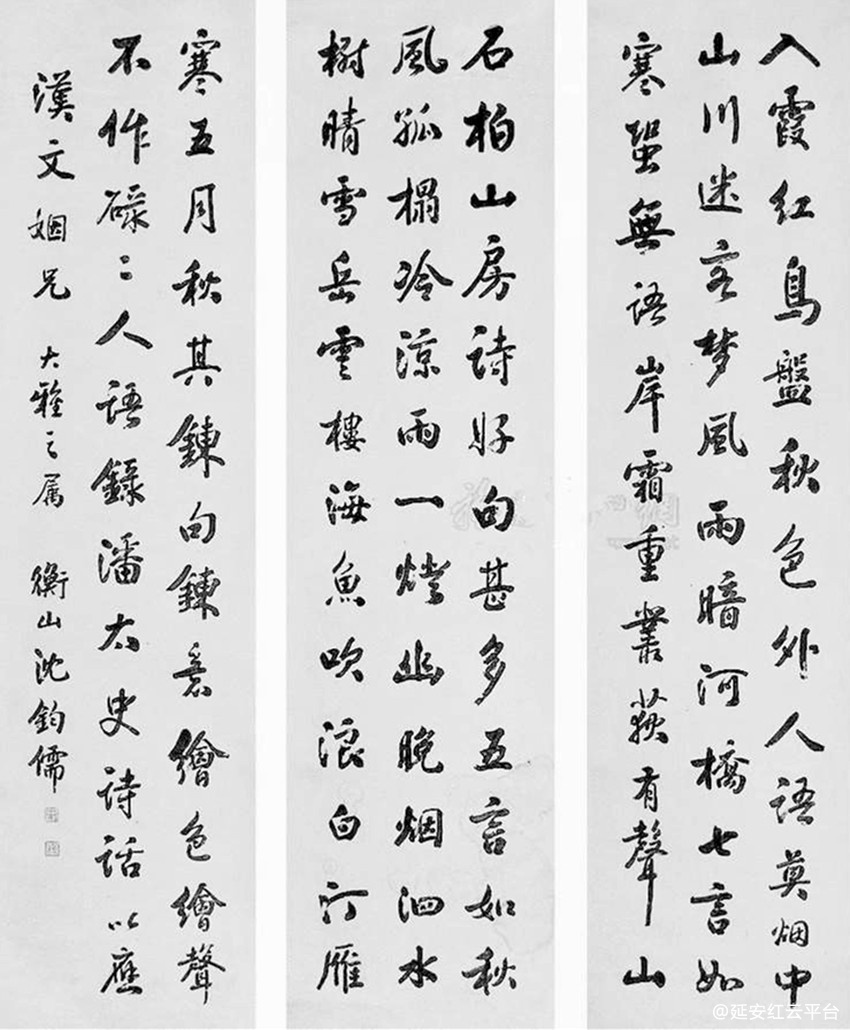 入霞紅鳥盤秋色外人語莫烟中
山川迷客夢風雨暗河橋七言如
寒蛩無語岸霜重叢荻有聲山
石柏山房詩好句甚多五言如秋
風孤榻冷涼雨一燈幽晚烟泗水
樹晴雪岳雲樓海魚吹浪白汀雁
寒五月秋其鍊句鍊意繪色繪聲
不作碌〻人語錄潘太史詩話以應
漢文姻兄 大雅之属 衡山沈鈞儒
@延安红云平台